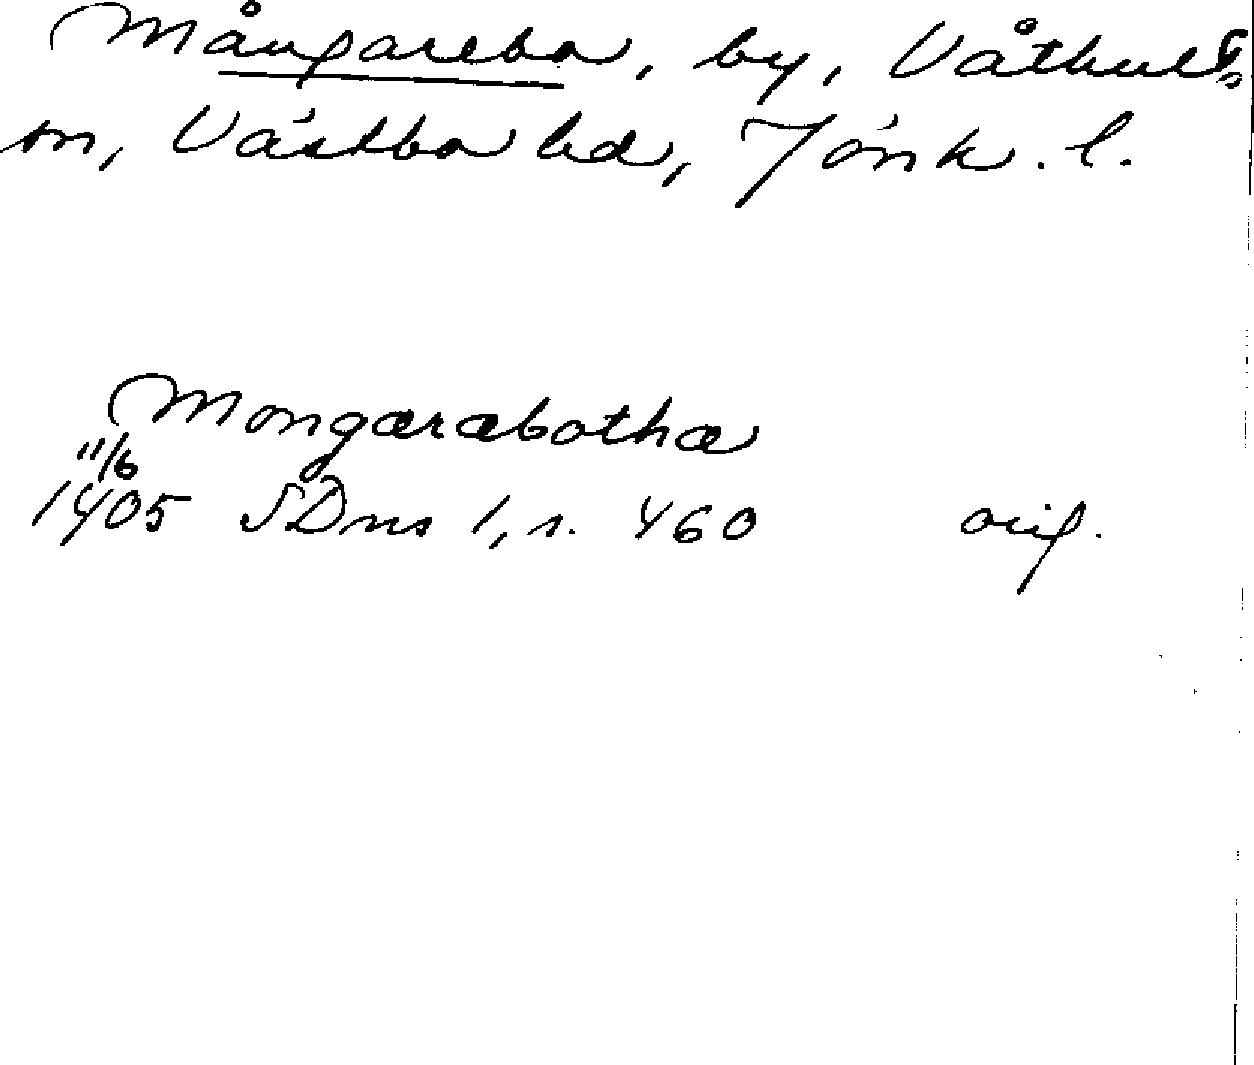 Mångarebo, by, Våthults
sn, Västbo hd, Jönk. l.
Mongæræbothæ
11/6
1405 SDns 1, s. 460 orig.